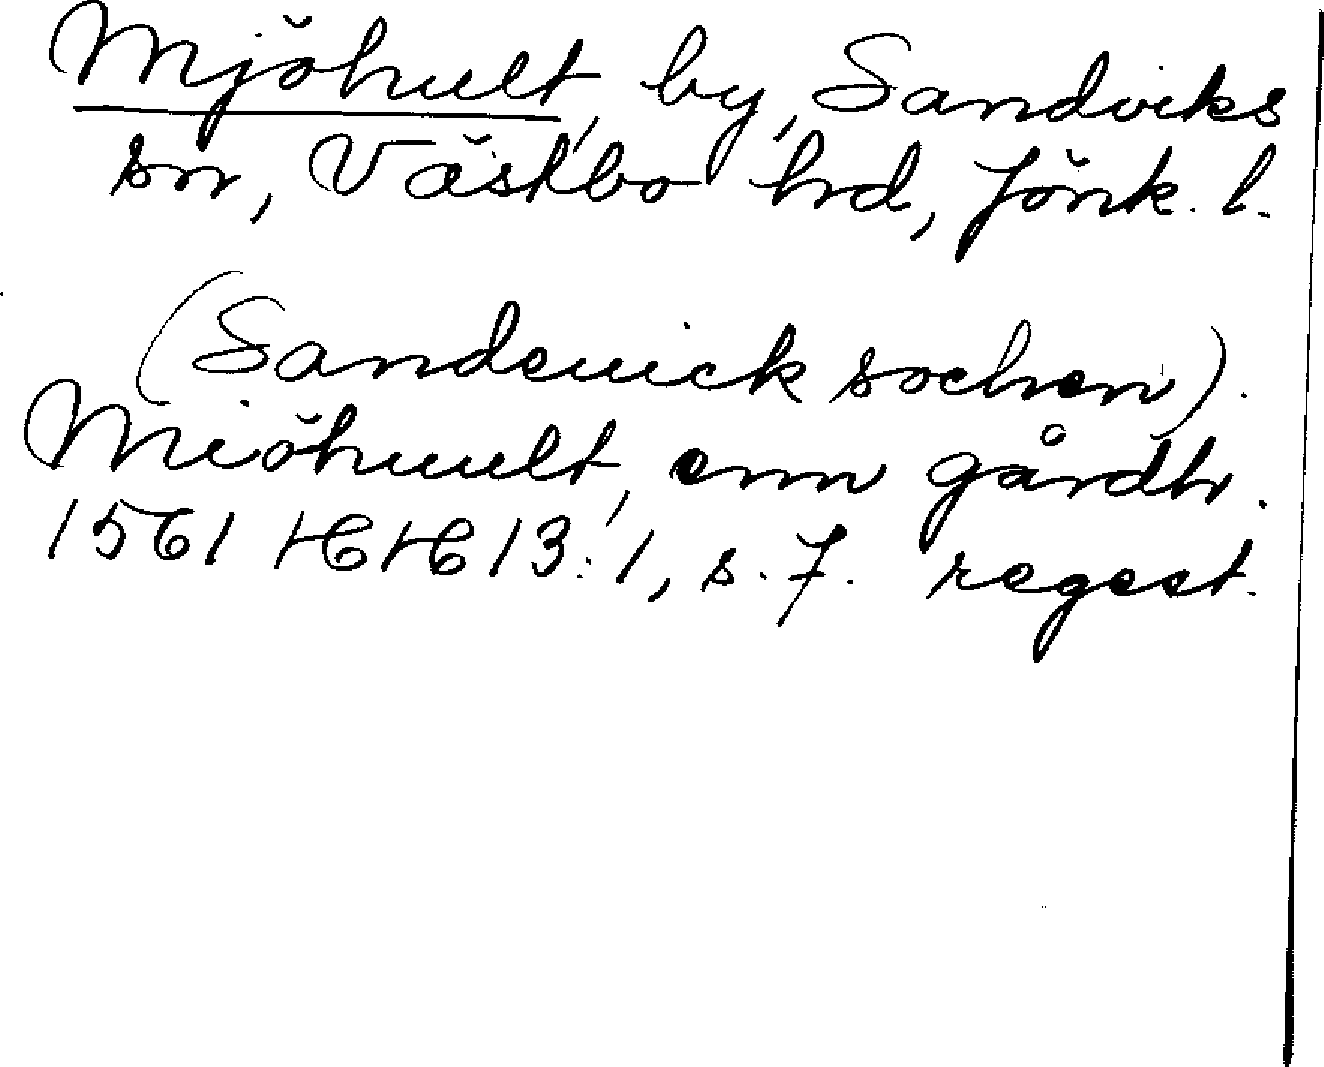 Mjöhult, by, Sandviks
sn, Västbo hrd, Jönk. l.
(Sandeuick sochen).
Miöhuult, enn gårdh.
1561 HH 13:1, s. 7. regest.